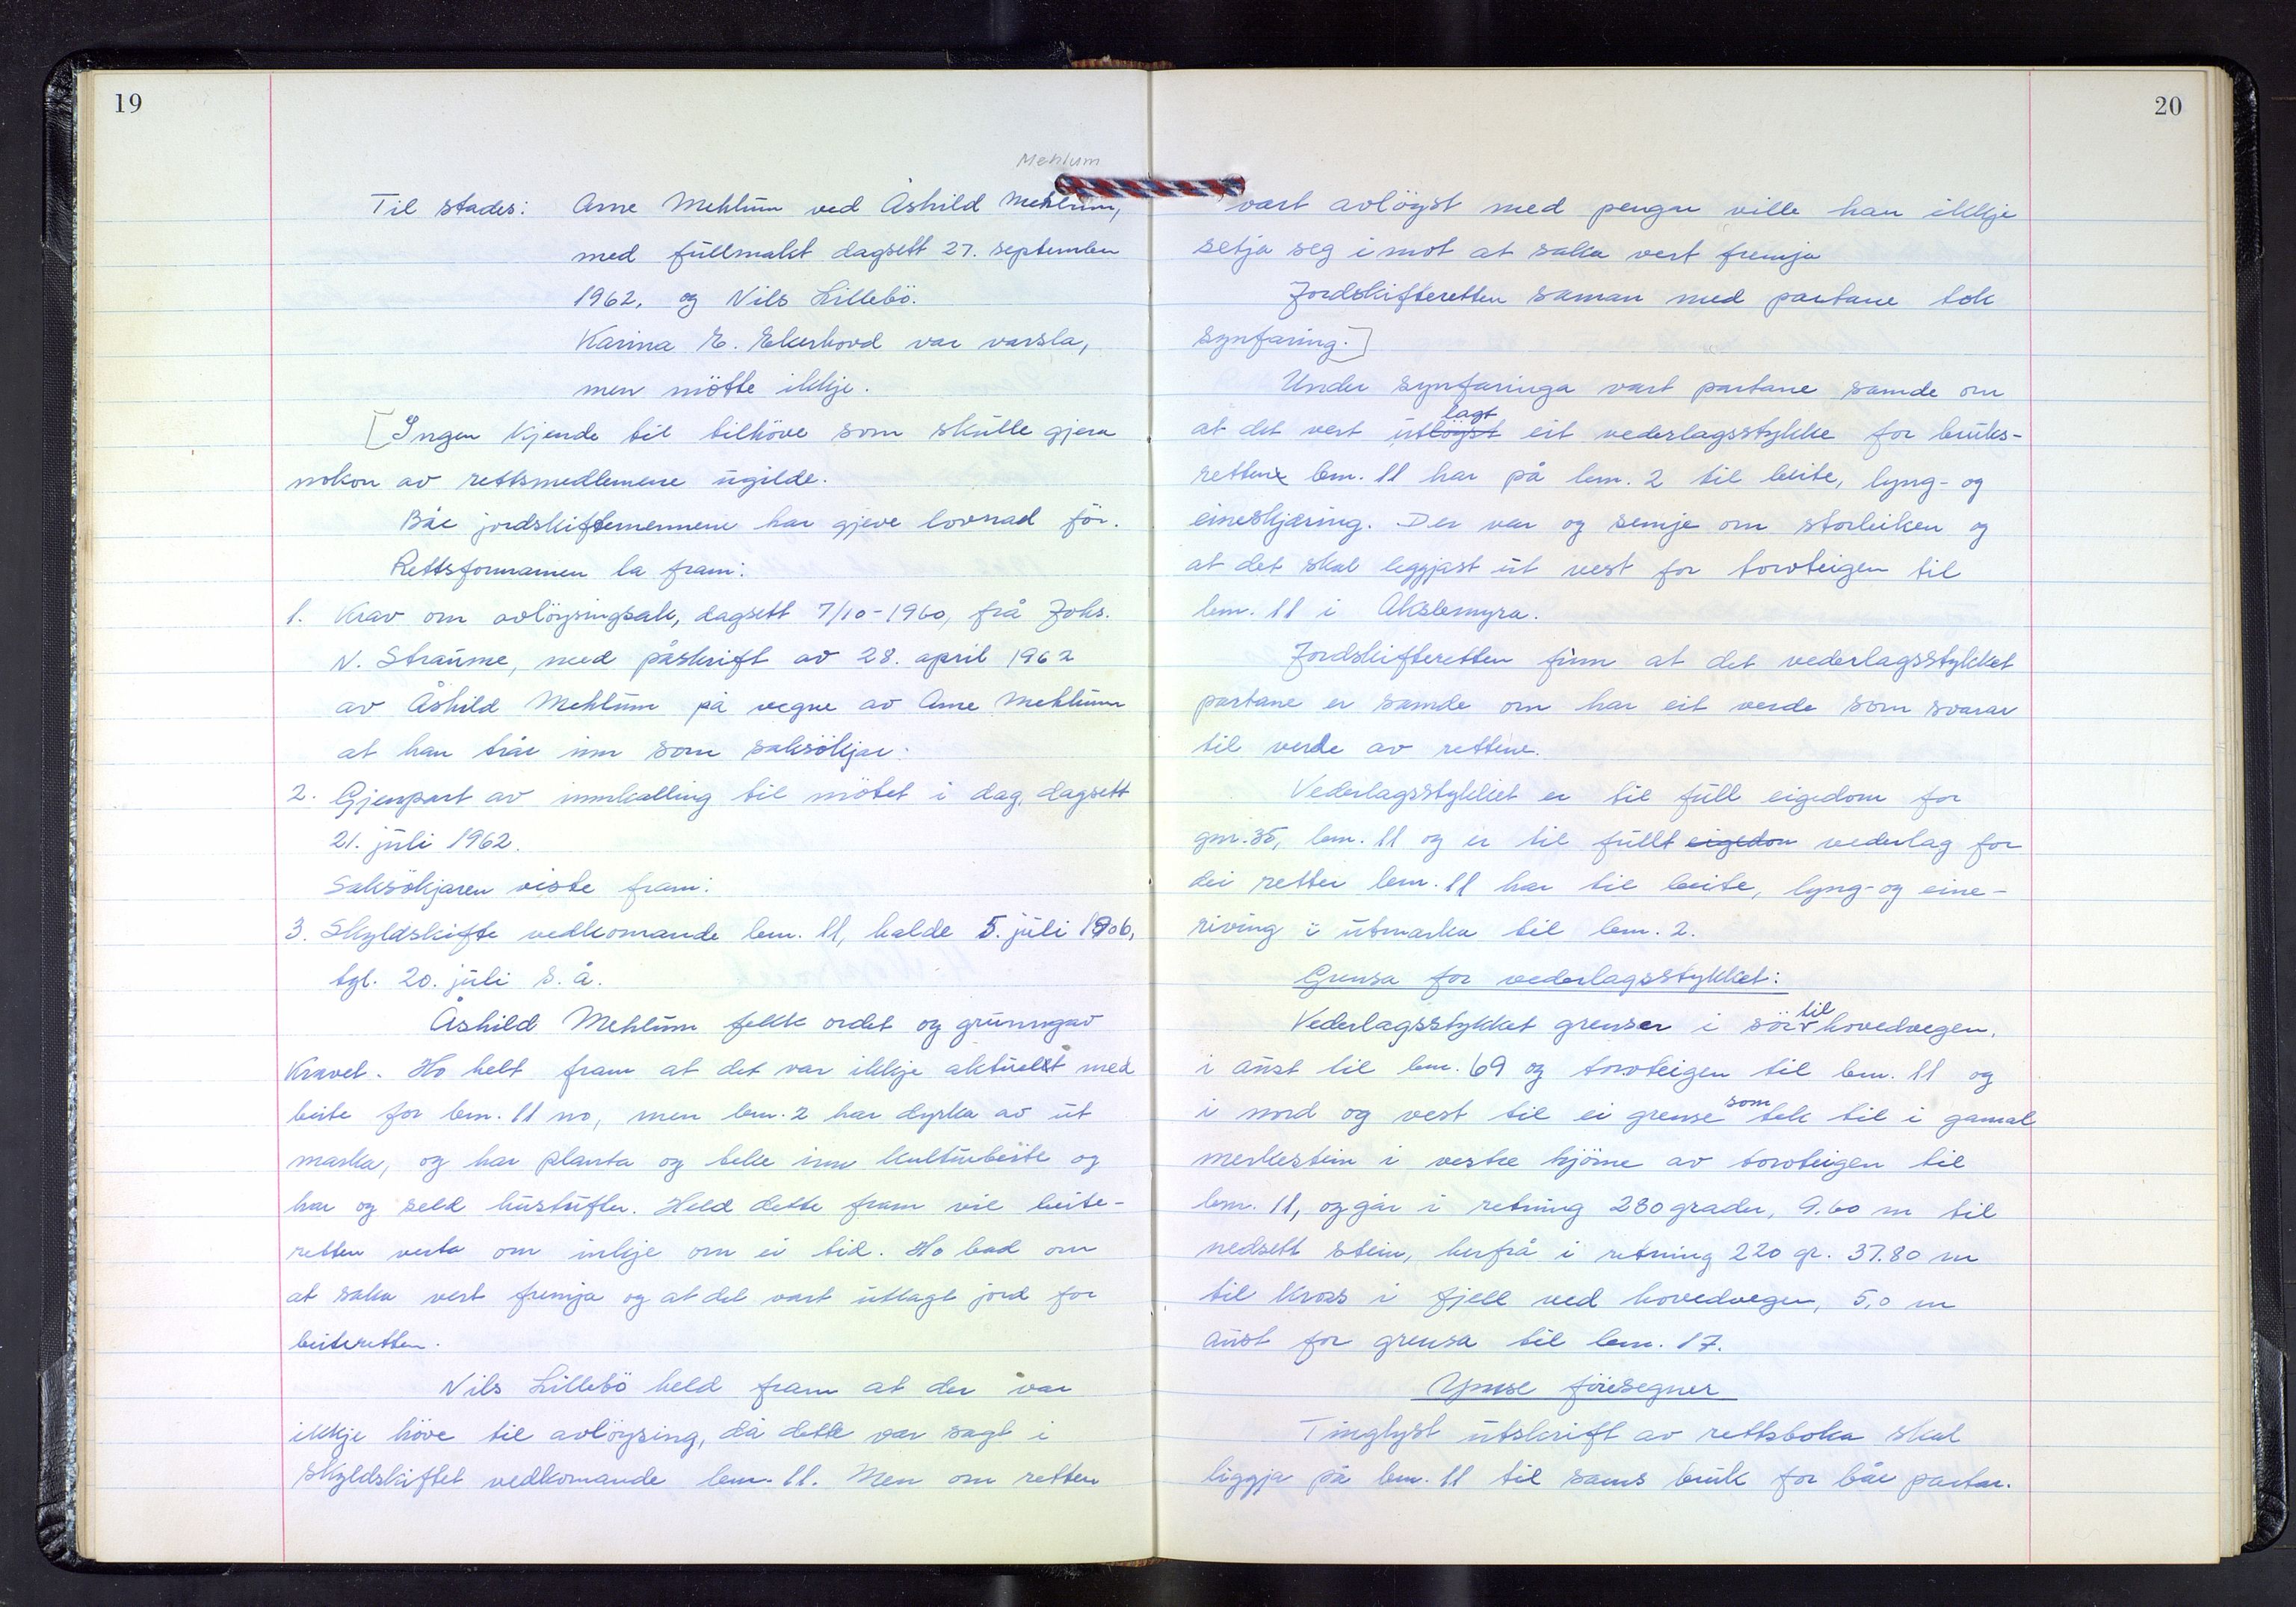 19
Mehlum
Til stades: Arne Mehlum ved Åshild Mehlum,
med fullmakt dagsett 27. september
1962, og Nils Lillebö.
Karina E. Ekerhovd var varsla,
men mötte ikkje.
[Ingen kjende til tilhöve som skulle gjera
nokon av rettsmedlemene ugilde.
Båe jordskiftemennene har gjeve lovnad för.
Rettsformannen la fram:
1. Krav om avlöysingsak, dagsett 7/10-1960, frå Johs.
N. Straume, med påskrift av 28. april 1962
av Åshild Mehlum på vegne av Arne Mehlum
at han trår inn som saksökjar.
2. Gjenpart av innkalling til mötet i dag, dagsett
21. juli 1962.
Saksökjaren viste fram:
3. Skyldskifte vedkomande bm. 11, halde 5. juli 1906,
tgl. 20. juli s. å.
Åshild Mehlum fekk ordet og grunngav
kravet. Ho helt fram at det var ikkje aktuelt med
beite for bm. 11 no, men bm. 2 har dyrka av ut
marka, og har planta og teke inn kulturbeite og
har og seld hustufter. Held dette fram vil beite-
retten verta om inkje om ei tid. Ho bad om
at saka vert fremja og at det vart utlagt jord for
beiteretten.
Nils Lillebö held fram at der var
ikkje höve til avlöysing, då dette var sagt i
skyldskiftet vedkomande bm. 11. Men om retten
20
vart avlöyst med pengar ville han ikkje
setja seg i mot at saka vert fremja
Jordskifteretten saman med partane tok
synfaring.]
Under synfaringa vart partane samde om
lagt
at det vert utlöyst eit vederlagsstykke for bruks-
rettene bm. 11 har på bm. 2 til beite, lyng- og
eineskjæring. Der var og semje om storleiken og
at det skal leggjast ut vest for torvteigen til
bm. 11 i Akslemyra.
Jordskifteretten finn at det vederlagsstykket
partane er samde om har eit verde som svarar
til verde av rettene.
Vederlagsstykket er til full eigedom for
gnr. 35, bm. 11 og er til fullt eigedom vederlag for
dei retter bm. 11 har til beite, lyng- og eine-
riving i utmarka til bm. 2.
Grensa for vederlagsstykket:
til
Vederlagsstykket grenser i sör hovedvegen.
i aust til bm. 69 og torvteigen til bm. 11 og
som
i nord og vest til ei grense tek til i gamal
merkestein i vestre hjörne av torvteigen til
bm. 11, og går i retning 280 grader, 9.60 m til
nedsett stein, herfrå i retning 220 gr. 37.80 m
til kross i fjell ved hovedvegen, 5,0 m
aust for grensa til bm. 17.
Ymse föresegner
Tinglyst utskrift av rettsboka skal
liggja på bm. 11 til sams bruk for båe partar.